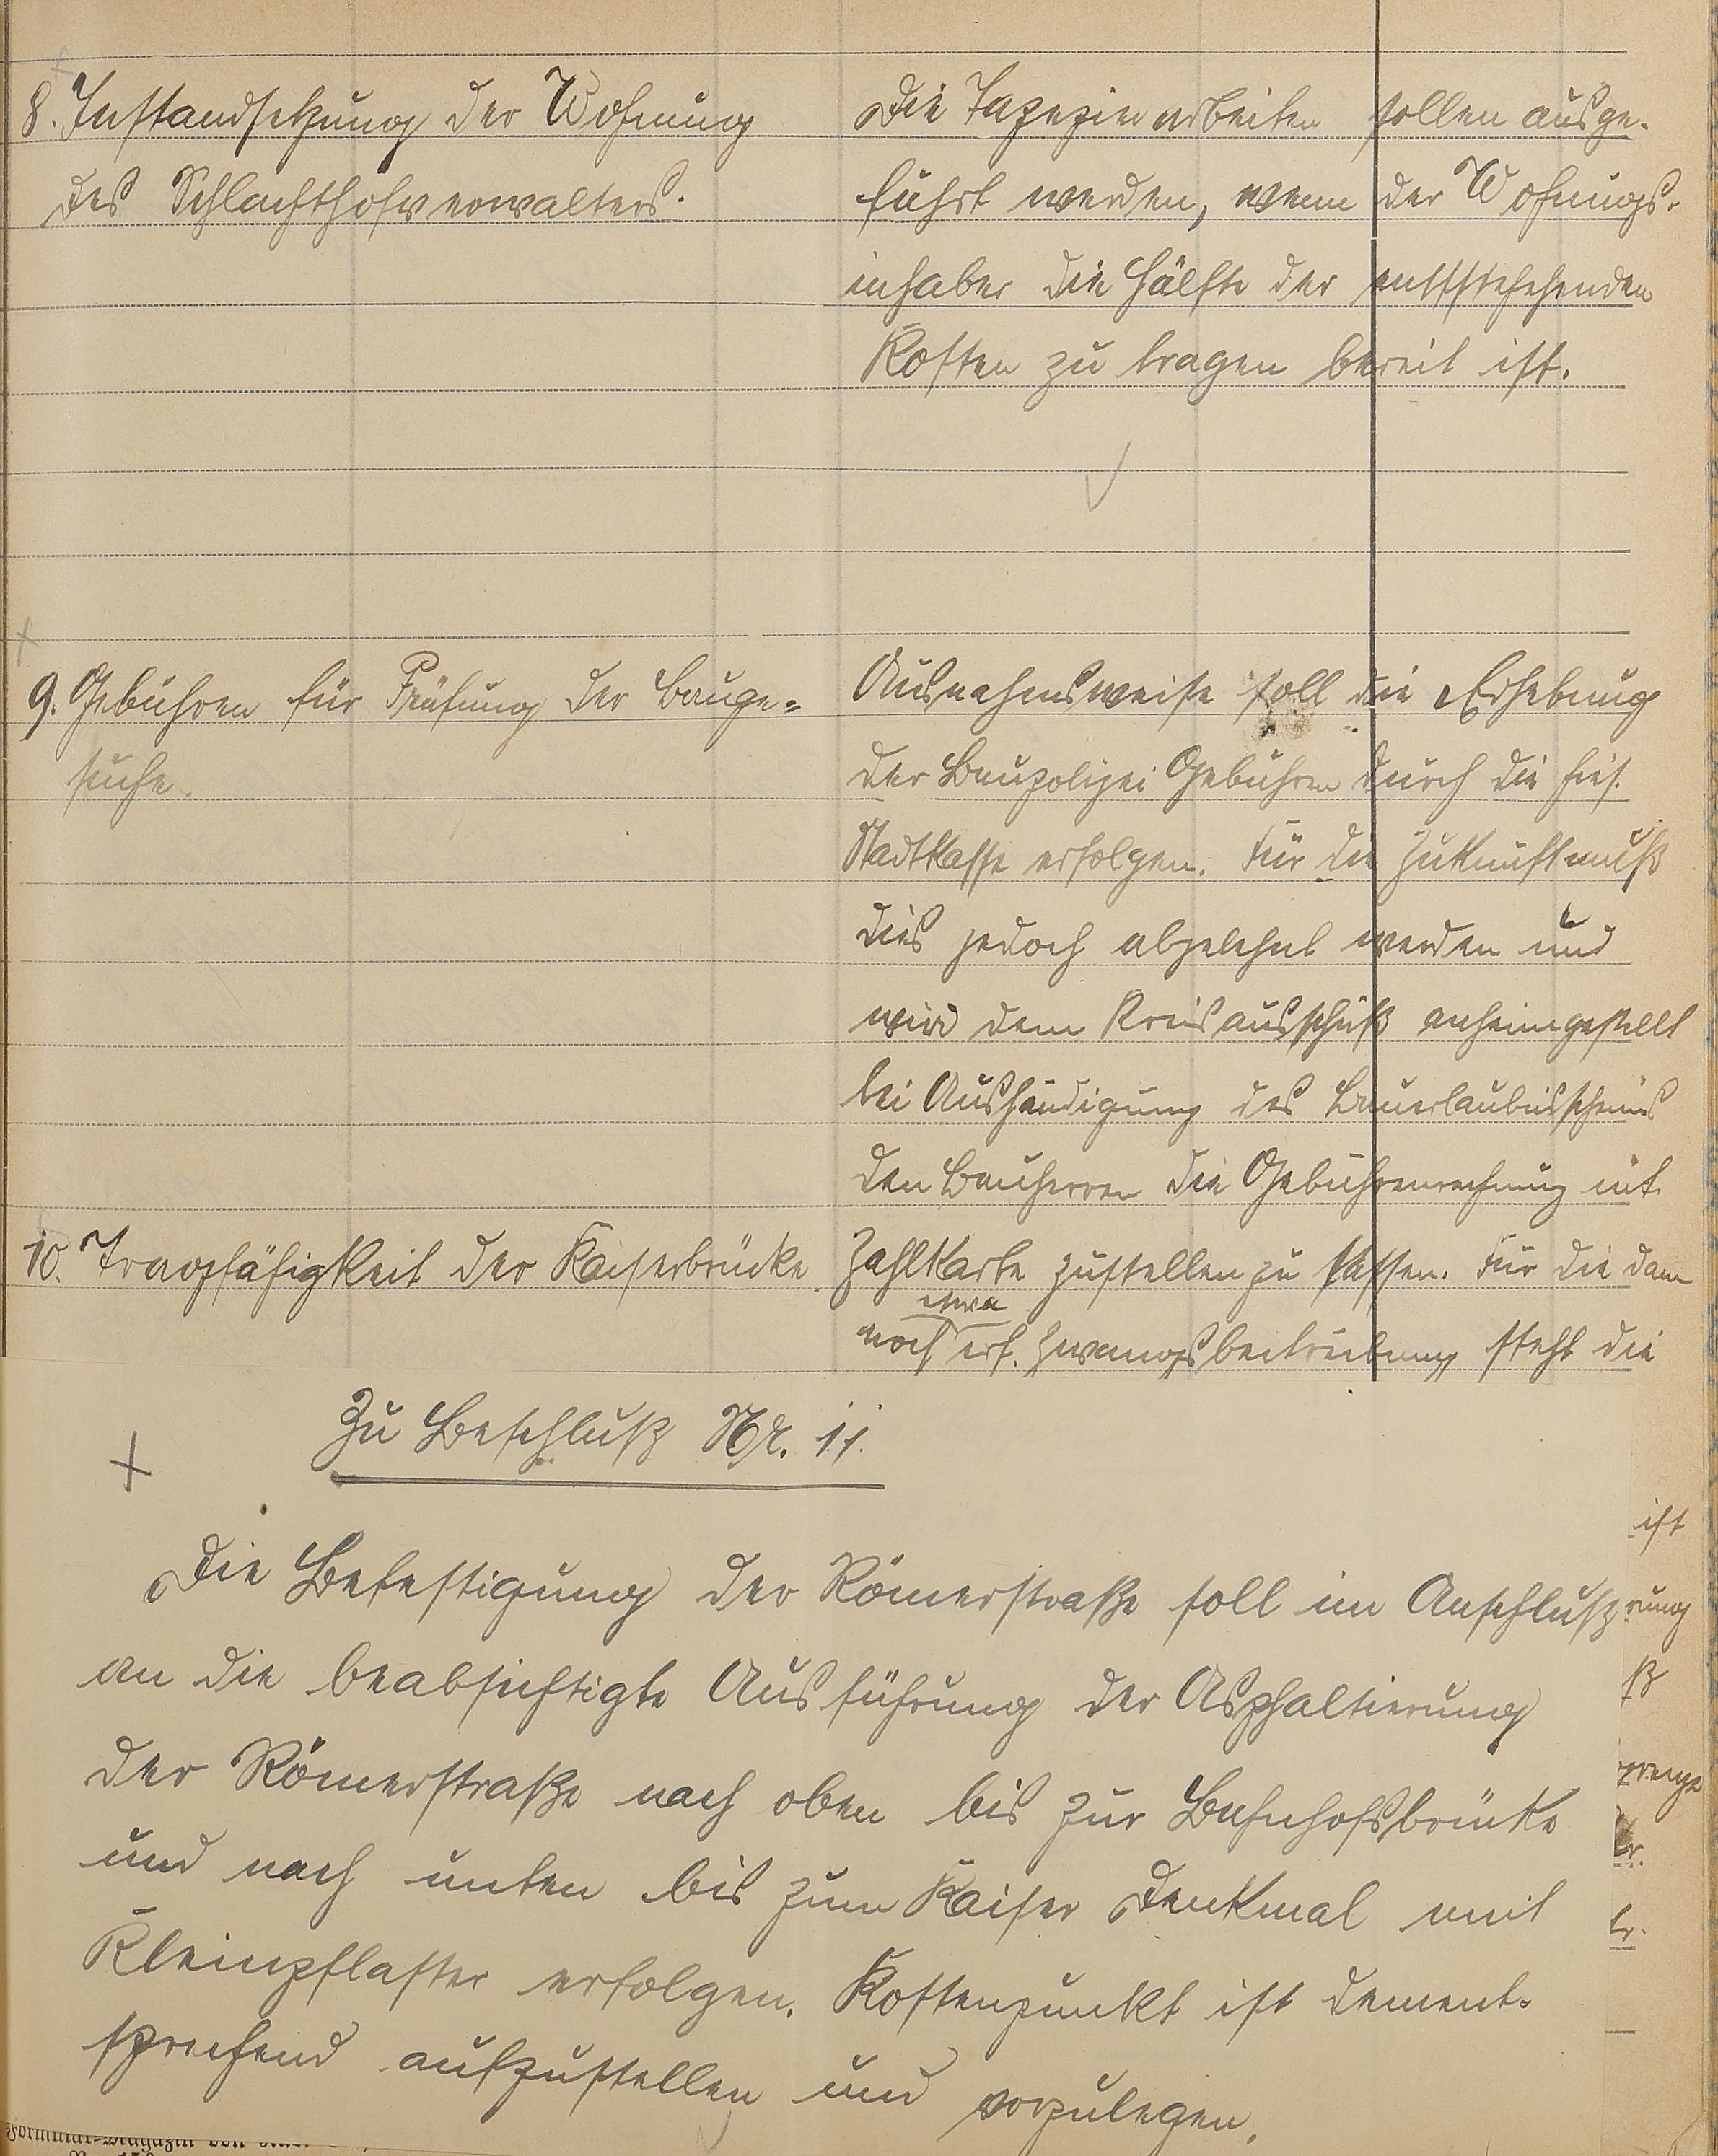 8. Instandsetzung der Wohnung
des Schlachthofverwalters.
Die Tapezierarbeiten sollen ausge-
führt werden, wenn der Wohnungs-
inhaber die Hälfte der entstehehenden
Kosten zu tragen bereit ist.
9. Gebühren für Prüfung der Bauge=
suche.
Ausnahmsweise soll die Erhebung
der Baupolizei Gebühren durch die hies.
Stadtkasse erfolgen. Für die Zukunft muß
dies jedoch abgelehnt werden und
wird dem Kreisausschuß anheimgestellt
bei Aushändigung des Bauerlaubnisscheins
den Bauherren die Gebührenrechnung mit
10. Tragfähigkeit der Kaiserbrücke.
Zahlkarte zustellen zu lassen. Für die dann
etwa
noch erf. Zwangsbeitreibung steht die
Zu Beschluß Nr. 11.
Die Befestigung der Römerstraße soll im Anschluß
an die beabsichtigte Ausführung der Asphaltierung
der Römerstraße nach oben bis zur Bahnhofsbrücke
und nach unten bis zum Kaiser Denkmal mit
Kleinpflaster erfolgen. Kostenpunkt ist dement-
sprechend aufzustellen und vorzulegen.
ist
rung
ß